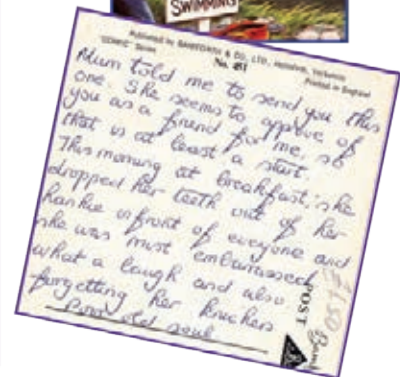 SWIMMING
Published by BAMFORTH & CO., LTD., Holmfirth, Yorkshire
"COMIC" Series
No. 451
Printed in England
Mum told me to send you this
one. She seems to approve of
you as a friend for me, so
that is at least a start.
This morning at breakfast, she
dropped her teeth out of her
hankie in front of everyone and
she was most embarrassed
what a laugh and also
forgetting her knickers
Poor old soul
POST